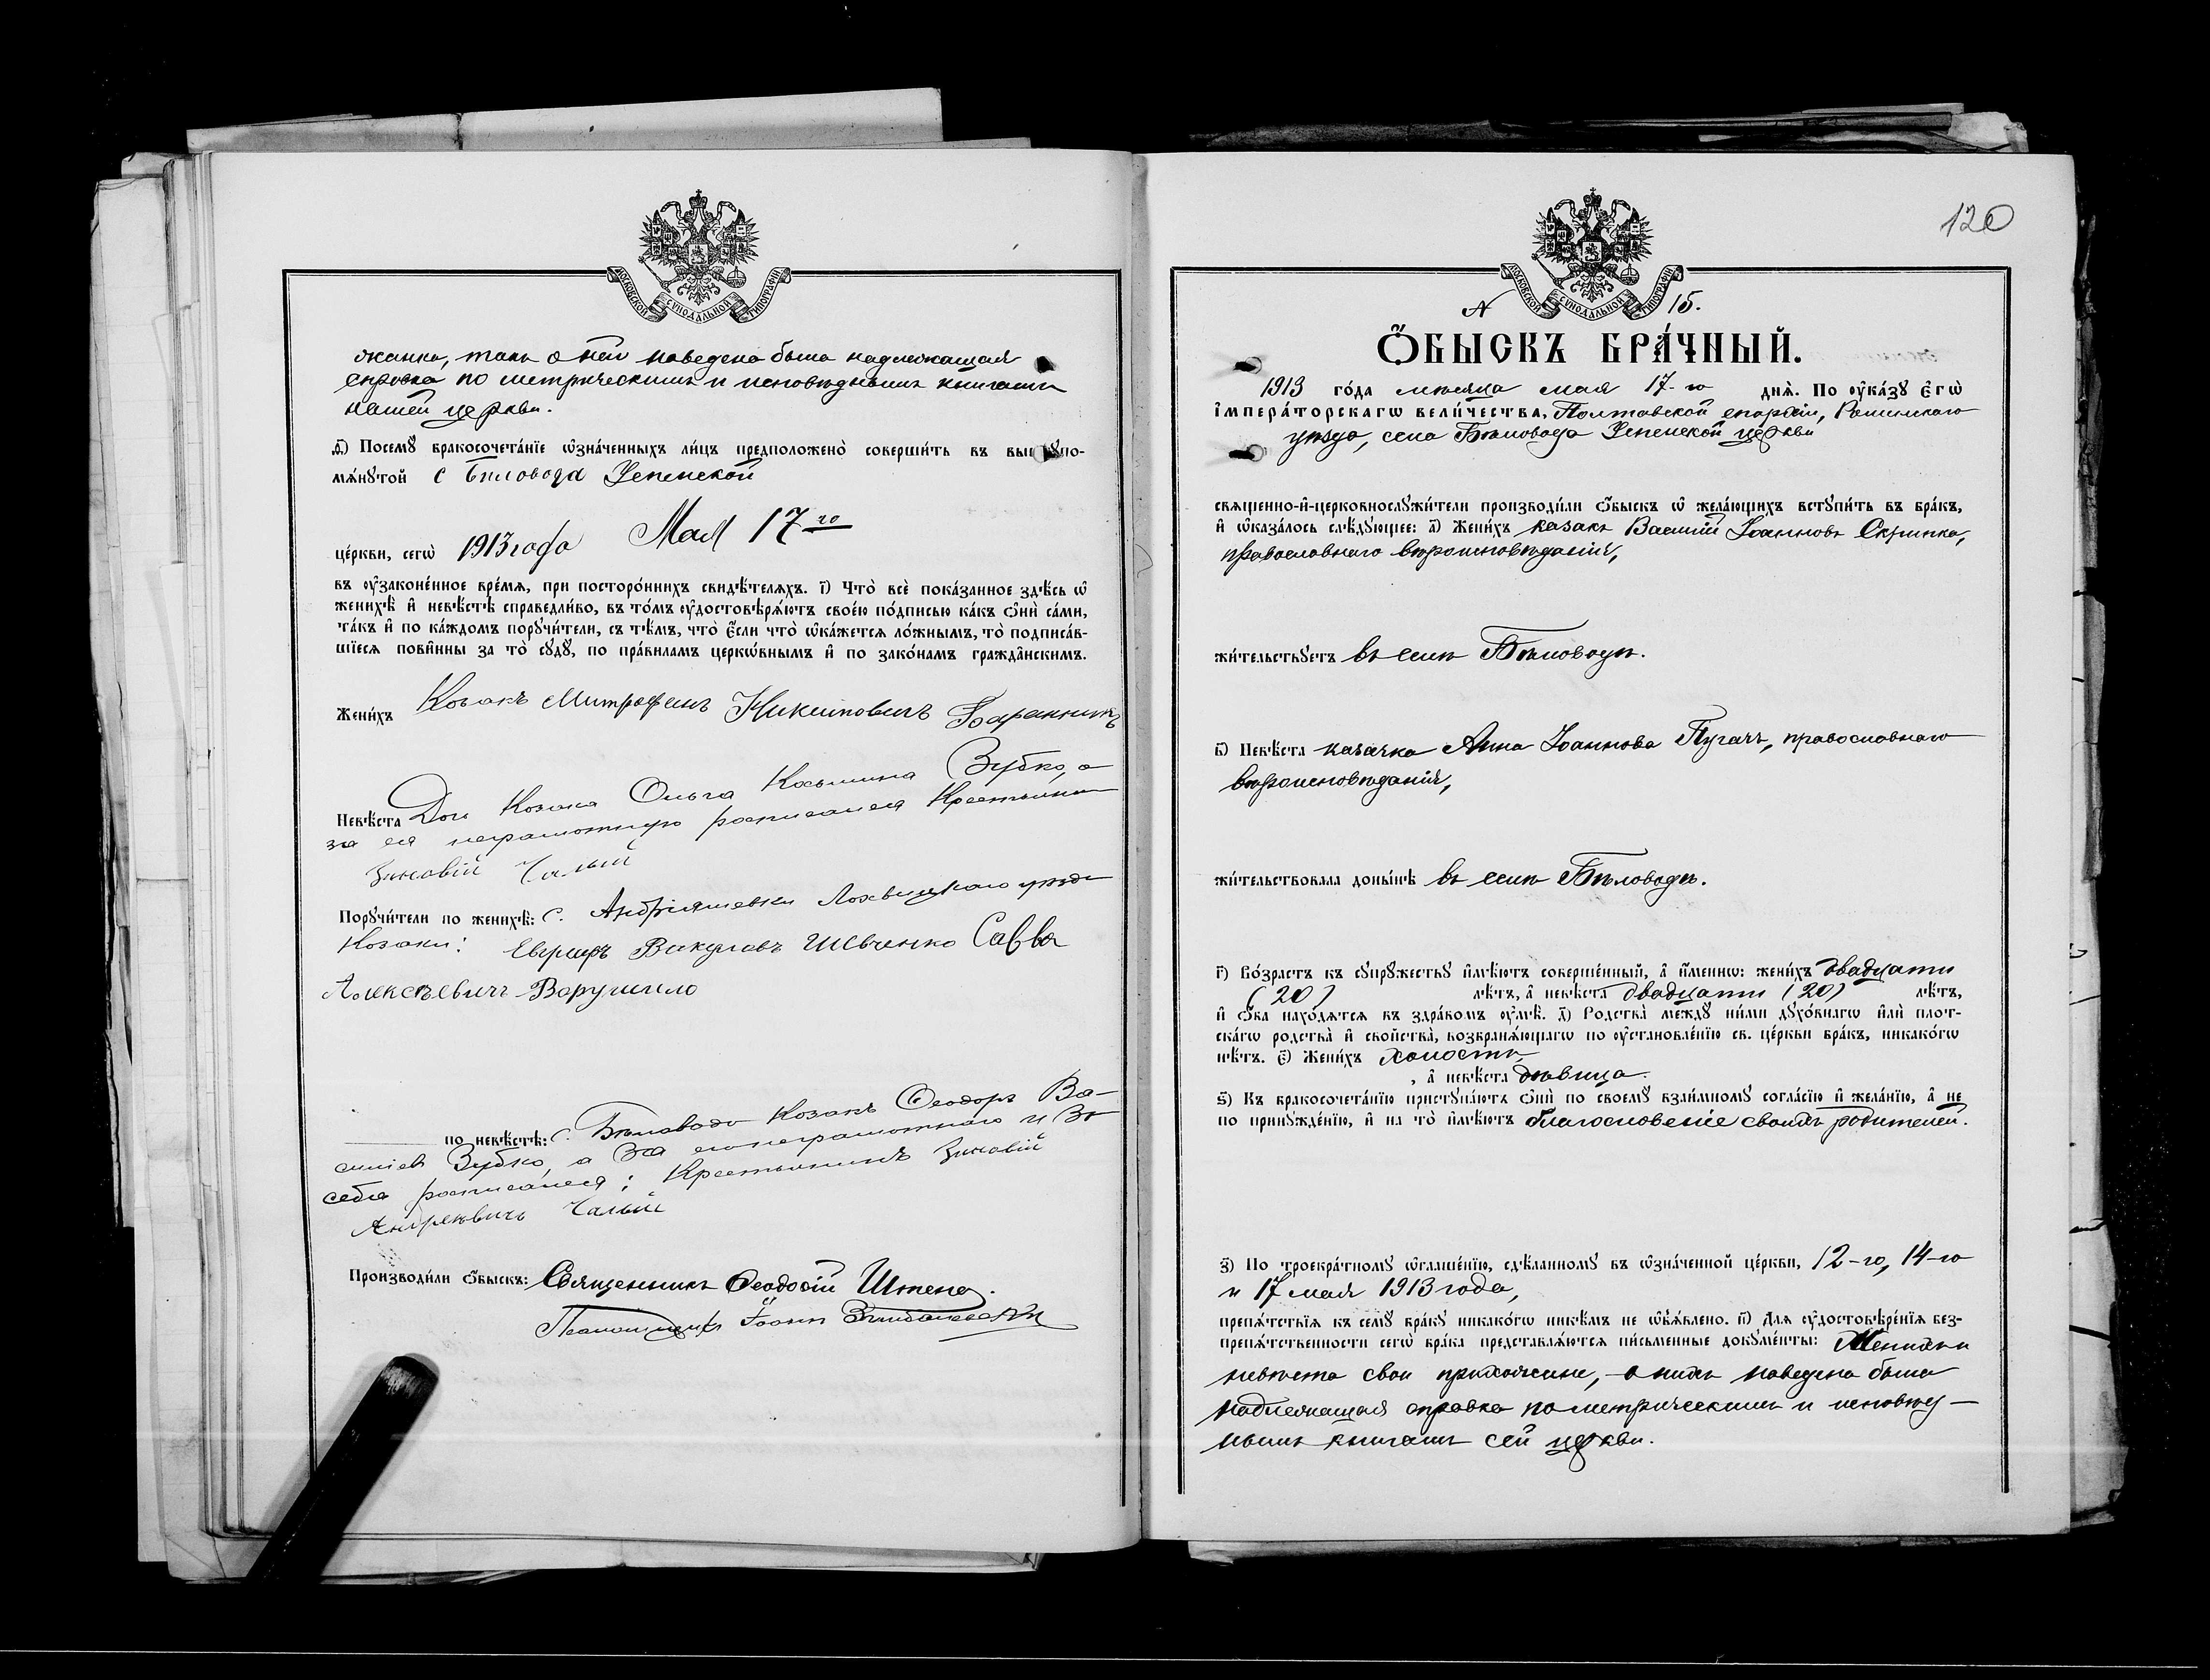 МОСКОВСКОЙ СУНОДАЛЬНОЙ ТИПОГРАФІИ
жанка, такъ о ней наведена была надлежащая
справка по метрическимъ и исповѣднымъ книгамъ
нашей церкви.
д҃і) Посемꙋ бракосочета́нїе ѡ҆зна́ченныхъ ли́цъ предположено̀ соверши́ть въ вы ꙋпо-
мѧ́нꙋтой с Бѣловода Успенской
це́ркви, сегѡ̀ 1913 года Мая 17 го
въ ᲂу҆законе́нное вре́мѧ, при посторо́ннихъ свидѣ́телѧхъ. і҃) Что̀ всѐ пока́занное здѣ́сь ѡ҆
женихѣ̀ и҆ невѣ́стѣ справедли́во, въ то́мъ ᲂу҆достовѣрѧ́ютъ свое́ю по́дписью ка́къ ѻ҆нѝ са́ми,
та́къ и҆ по ка́ждомъ порꙋчи́тели, съ тѣ́мъ, что̀ є҆́сли что̀ ѡ҆ка́жетсѧ ло́жнымъ, то̀ подписа́в-
шїесѧ пови́нны за то̀ сꙋдꙋ̀, по пра́виламъ церкѡ́внымъ и҆ по зако́намъ гражда̑нскимъ.
Жени́хъ Козакъ Митрофанъ Никитовичъ Баранникъ
Невѣ́ста Доч Козака Ольга Косьмина Зубко, а
за ея неграмотную росписался Крестьянин
Зиновій Чалый
Порꙋчи́тели по женихѣ̀: С. Андріяшевки Лохвицкаго уезда
Козаки: Евграфъ Викулавъ Шевченко Савва
Алексѣевичъ Ворушило
по невѣ́стѣ: с. Бѣловода Козакъ Феодоръ Ва-
силіев Зубко, а за его неграмотнаго и За
себя росписался: Крестьянинъ Зиновій
Андреѣвичъ Чалый
Производи́ли ѻ҆́быскъ: Священникъ Феодосій Штепа.
Псаломщикъ Іоаннъ
120
МОСКОВСКОЙ СУНОДАЛЬНОЙ ТИПОГРАФІИ
№ 15.
Ѻ҆́БЫСКЪ БРА́ЧНЫЙ.
1913 го́да мѣсяца мая 17-го днѧ̀. По ᲂу҆ка́зꙋ Є҆гѡ̀
і҆мпера́торскагѡ вели́чества, Полтавской епархіи, Роменскаго
уѣзда, села Бѣловода Успенской церкви
свѧще́нно-и҆-церковнослꙋжи́тели производи́ли ѻ҆́быскъ ѡ҆ жела́ющихъ встꙋпи́ть въ бра́къ,
и҆ ѡ҆каза́лось слѣ́дꙋющее: а҃) Жени́хъ казакъ Василій Іоанновъ Скрипка,
православнаго вѣроисповѣданія,
жи́тельствꙋетъ въ селѣ Бѣловодѣ.
в҃) Невѣ́ста казачка Анна Іоаннова Пугачъ, православнаго
вѣроисповѣданія,
жи́тельствовала доны́нѣ въ селѣ Бѣловодѣ.
г҃) Во́зрастъ къ сꙋпрꙋжествꙋ̀ и҆мѣ́ютъ соверше́нный, а҆ и҆́менно: жени́хъ двадцати
(20) лѣ́тъ, а҆ невѣ́ста двадцати (20) лѣ́тъ,
и҆ ѻ҆́ба нахо́дѧтсѧ въ здра́вомъ ᲂу҆мѣ̀. д҃) Родства̀ междꙋ̀ ни́ми дꙋхо́внагѡ и҆лѝ плот-
ска́гѡ родства̀ и҆ свойства̀, возбранѧ́ющагѡ по ᲂу҆становле́нїю св. це́ркви бра́къ, никако́гѡ
нѣ́тъ. є҃) Жени́хъ холостъ,
, а҆ невѣ́ста дѣвица.
ѕ҃) Къ бракосочета́нїю пристꙋпа́ютъ ѻ҆нѝ по своемꙋ̀ взаи́мномꙋ согла́сїю и҆ жела́нїю, а҆ не
по принꙋжде́нїю, и҆ на то̀ и҆мѣ́ютъ благословеніе своихъ родителей.
з҃) По троекра́тномꙋ ѡ҆глаше́нїю, сдѣ́ланномꙋ въ ѡ҆зна́ченной це́ркви, 12-го, 14-го
и 17 мая 1913 года,
препѧ́тствїѧ къ семꙋ̀ бра́кꙋ никако́гѡ никѣ́мъ не ѡ҆б̾ѧ́влено. и҃) Длѧ ᲂу҆достовѣре́нїѧ без-
препѧ́тственности сегѡ̀ бра́ка представлѧ́ютсѧ пи́сьменные докꙋме́нты: Женихъ и
невѣста свои прихожане, о нихъ наведена была
надлежащая справка по метрическимъ и исповѣд-
нымъ книгамъ сей церкви.